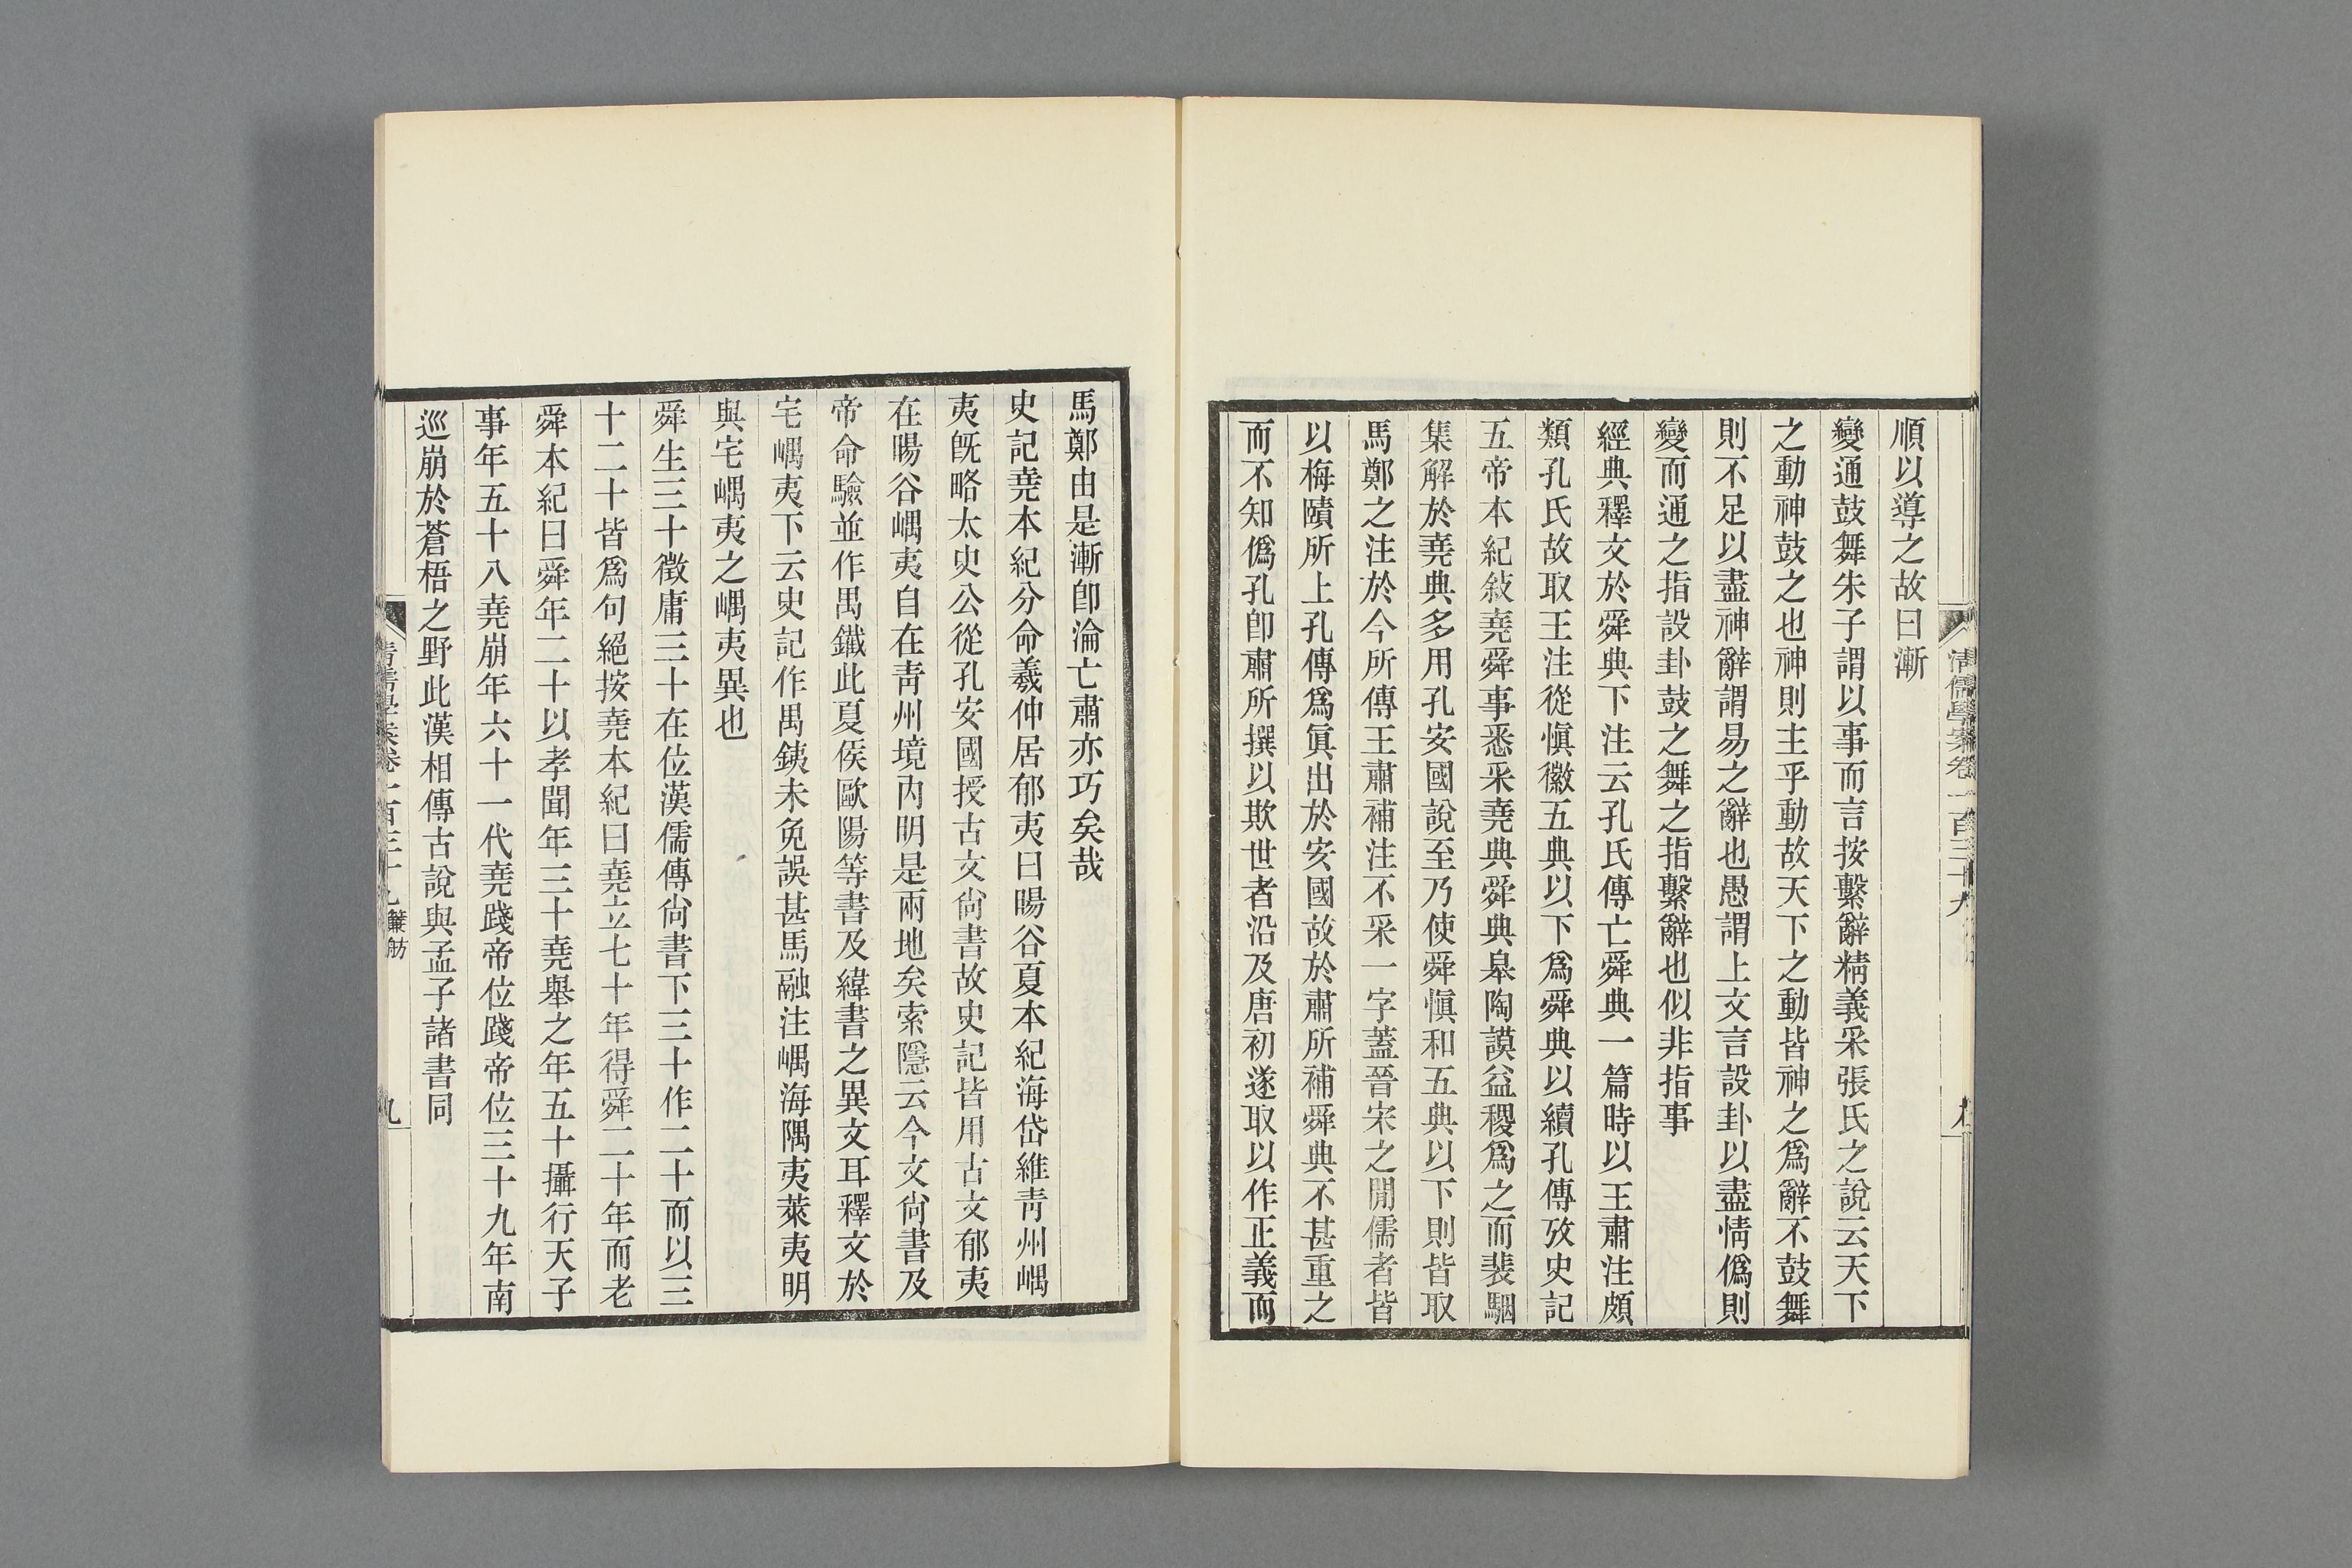 清儒學案卷一百三十九
順以導之故曰漸
變通鼓舞朱子謂以事而言按繫辭精義采張氏之說云天下
之動神鼓之也神則主乎動故天下之動皆神之爲辭不鼓舞
則不足以盡神辭謂易之辭也愚謂上文言設卦以盡情僞則
變而通之指設卦鼓之舞之指繫辭也似非指事
經典釋文於舜典下注云孔氏傳亡舜典一篇時以王肅注頗
類孔氏故取王注從愼徽五典以下爲舜典以續孔傳攷史記
五帝本紀敍堯舜事悉采堯典舜典皋陶謨益稷爲之而裴駰
集解於堯典多用孔安國說至乃使舜愼和五典以下則皆取
馬鄭之注於今所傳王肅補注不采一字蓋晉宋之閒儒者皆
以梅賾所上孔傳爲眞出於安國故於肅所補舜典不甚重之
而不知僞孔卽肅所撰以欺世者沿及唐初遂取以作正義而
馬鄭由是漸卽淪亡肅亦巧矣哉
史記堯本紀分命羲仲居郁夷曰暘谷夏本紀海岱維靑州嵎
夷旣略太史公從孔安國授古文尙書故史記皆用古文郁夷
在暘谷嵎夷自在靑州境內明是兩地矣索隱云今文尙書及
帝命驗並作禺鐵此夏侯歐陽等書及緯書之異文耳釋文於
宅嵎夷下云史記作禺銕未免誤甚馬融注嵎海隅夷萊夷明
與宅嵎夷之嵎夷異也
舜生三十徵庸三十在位漢儒傳尙書下三十作二十而以三
十二十皆爲句絕按堯本紀曰堯立七十年得舜二十年而老
舜本紀曰舜年二十以孝聞年三十堯舉之年五十攝行天子
事年五十八堯崩年六十一代堯踐帝位踐帝位三十九年南
巡崩於蒼梧之野此漢相傳古說與孟子諸書同
清儒學案卷一百三十九 簾舫
九